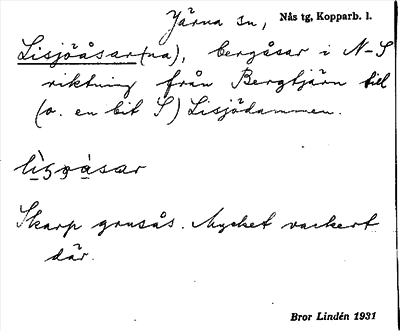 Järna sn, Nås tg, Kopparb. l.
Lisjöåsar(na), bergåsar i N-S
riktning från Bergtjärn till
(o. en bit S) Lisjödammen.
Skarp grusås. Mycket vackert
där.
Bror Lindén 1931